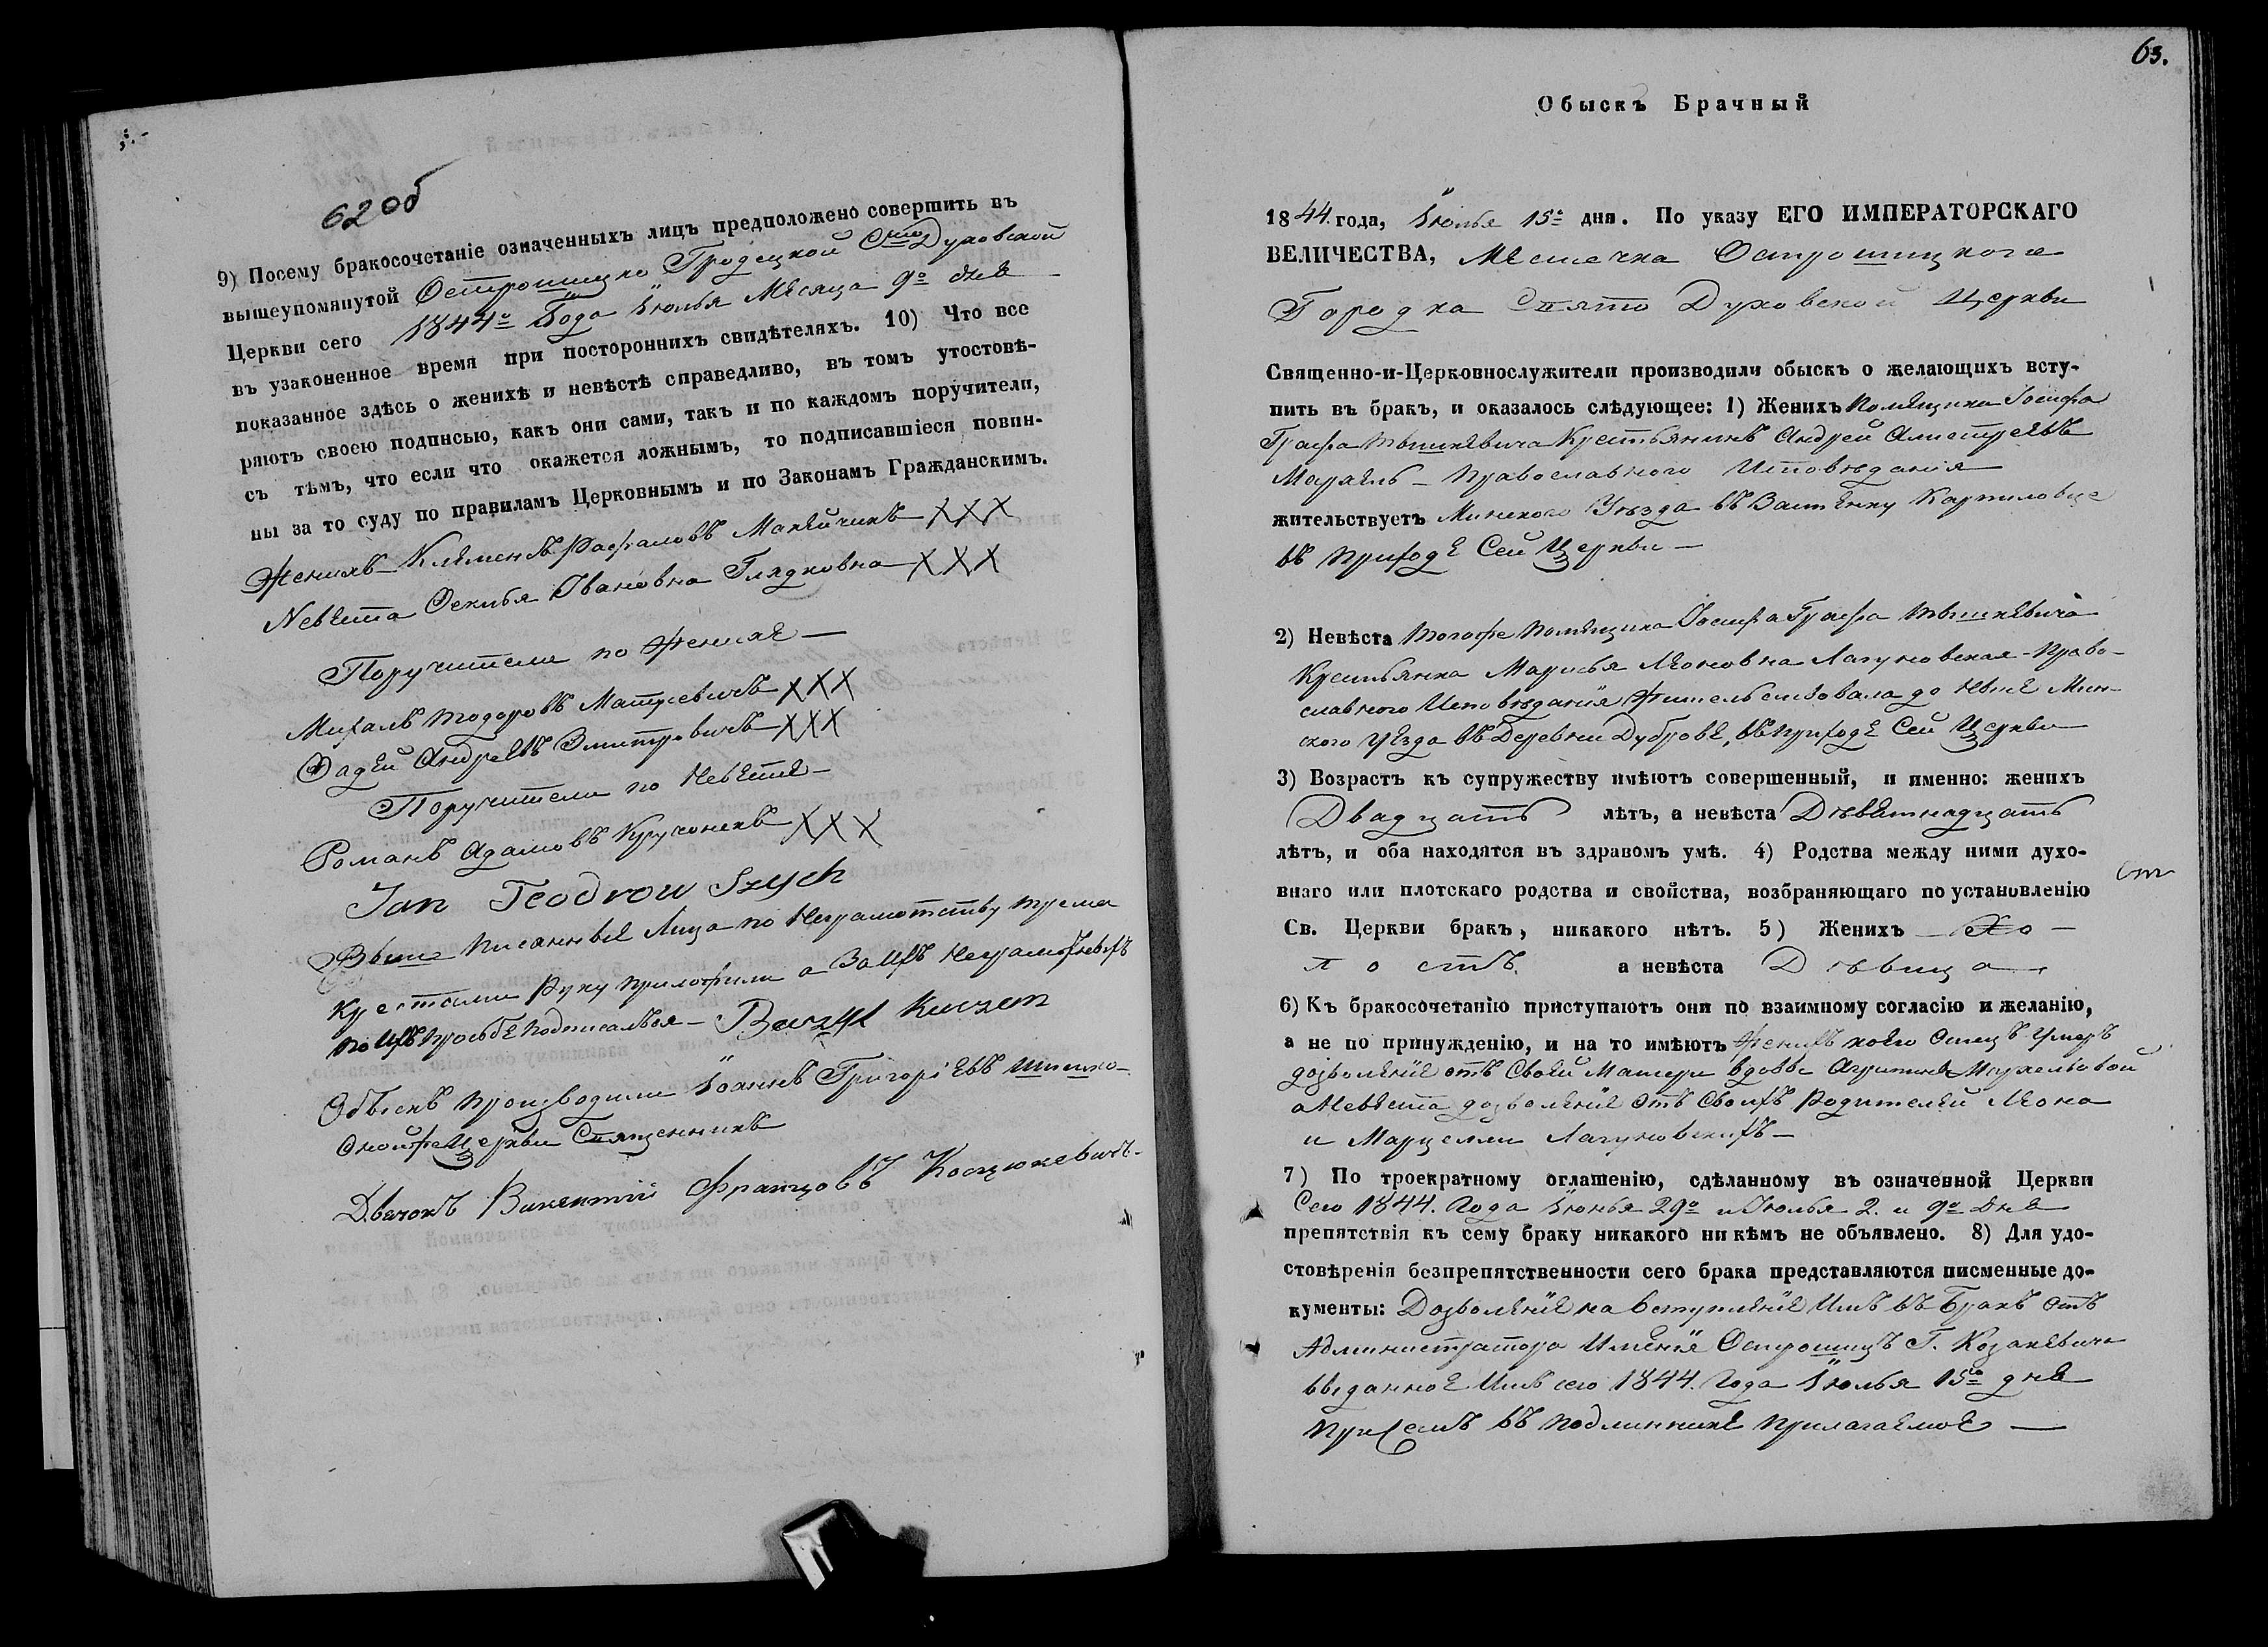 62 об
9) Посему бракосочетаніе означенныхъ лицъ предположено совершить въ
вышеупомянутой Острошицко Гродецкой Свято Духовской
Церкви сего 1844го Года Іюлья Месяца 9го дня
въ узаконенное время при постороннихъ свидѣтеляхъ. 10) Что все
показанное здѣсь о женихѣ и невѣстѣ справедливо, въ томъ утостовѣ-
ряютъ своею подписью, какъ они сами, такъ и по каждомъ поручители,
съ тѣмъ, что если что окажется ложнымъ, то подписавшіеся повин-
ны за то суду по правиламъ Церковнымъ и по Законамъ Гражданскимъ.
Женихъ Клеменъ Рафаловъ Макейчикъ XXX
Невѣста Івановна Гладковна XXX
Поручители по Женихе —
Михалъ Тодоровъ Матусевичъ XXX
Фадей Андреевъ Змитровичъ XXX
Поручители по Невѣсте —
Романъ Адамовъ Кручонекъ XXX
Jan Teodrow Szych
Выше писанные Лица по Неграмотству трема
Крестами Руку приложили а За ихъ Неграмотныхъ
по ихъ прозьбе подписалъся —
Обыскъ производили Іоаннъ Григоріевъ Шишко
Оной же Церкви Священникъ
Дьячокъ Викентий Францовъ Косцюкевичъ
63.
Обыскъ Брачный
1844. года, Іюлья 15го дня. По указу ЕГО ИМПЕРАТОРСКАГО
ВЕЛИЧЕСТВА, Местечка Острошицкого
Городка Свято Духовской Церкви
Священно-и-Церковнослужители производили обыскъ о желающихъ всту-
пить въ бракъ, и оказалось слѣдующее: 1) Женихъ Помещика Іосифа
Графа Тышкевича Крестьянинъ Андрей
Православного Исповѣданія
жительствуетъ Минского Уѣзда въ Застенку Карпиловце
въ приходе Сей Церкви —
2) Невѣста Тогоже Помещика Іосифа Графа Тышкевича
Крестьянка Марисья Леоновна Лагуновская Право-
славного Исповѣданія Жительствовала до ныне Мин-
ского уезда въ Деревни Дуброве, въ приходе Сей Церкви
3) Возрастъ къ супружеству имѣютъ совершенный, и именно: женихъ
Двадцать лѣтъ, а невѣста Дѣвятнадцать
лѣтъ, и оба находятся въ здравомъ умѣ. 4) Родства между ними духо-
внаго или плотскаго родства и свойства, возбраняющаго по установленію
Св. Церкви бракъ, никакого нѣтъ. 5) Женихъ — Хо —
лостъ. а невѣста Дѣвица
6) Къ бракосочетанію приступаютъ они по взаимному согласію и желанію,
а не по принужденію, и на то имѣютъ Женихъ коего Отецъ Умеръ
дозволеніе отъ Своей Матери вдовы
а Невѣста дозволеніе отъ Своихъ Родителей Леона
и Марцелли Лагуновскихъ —
7) По троекратному оглашенію, сдѣланному въ означенной Церкви
Сего 1844. Года Іюнья 29го и Іюлья 2. и 9го дня
препятствія къ сему браку никакого ни кѣмъ не объявлено. 8) Для удо-
стовѣренія безпрепятственности сего брака представляются писменные до-
кументы: Дозволеніе на вступленіе Имъ въ Бракъ отъ
Администратора Именія Острошицъ Г. Козакевича
выданное Имъ сего 1844. Года Іюлья 15го дня
при семъ въ подлиннике прилагаемое —